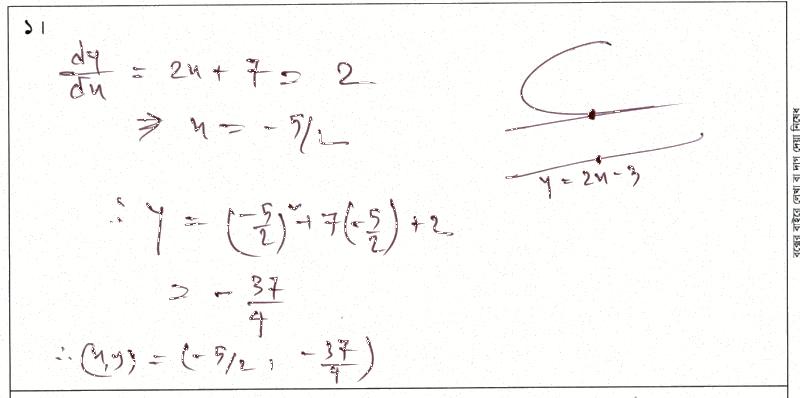 ১।
dy/dx = 2x + 7 = 2
⇒ x = -5/2
y = 2x - 3
∴ y = (-5/2)² + 7(-5/2) + 2
= - 37/4
∴ (x, y) = (-5/2, -37/4)
বক্সের বাইরে লেখা বা দাগ দেয়া নিষেধ